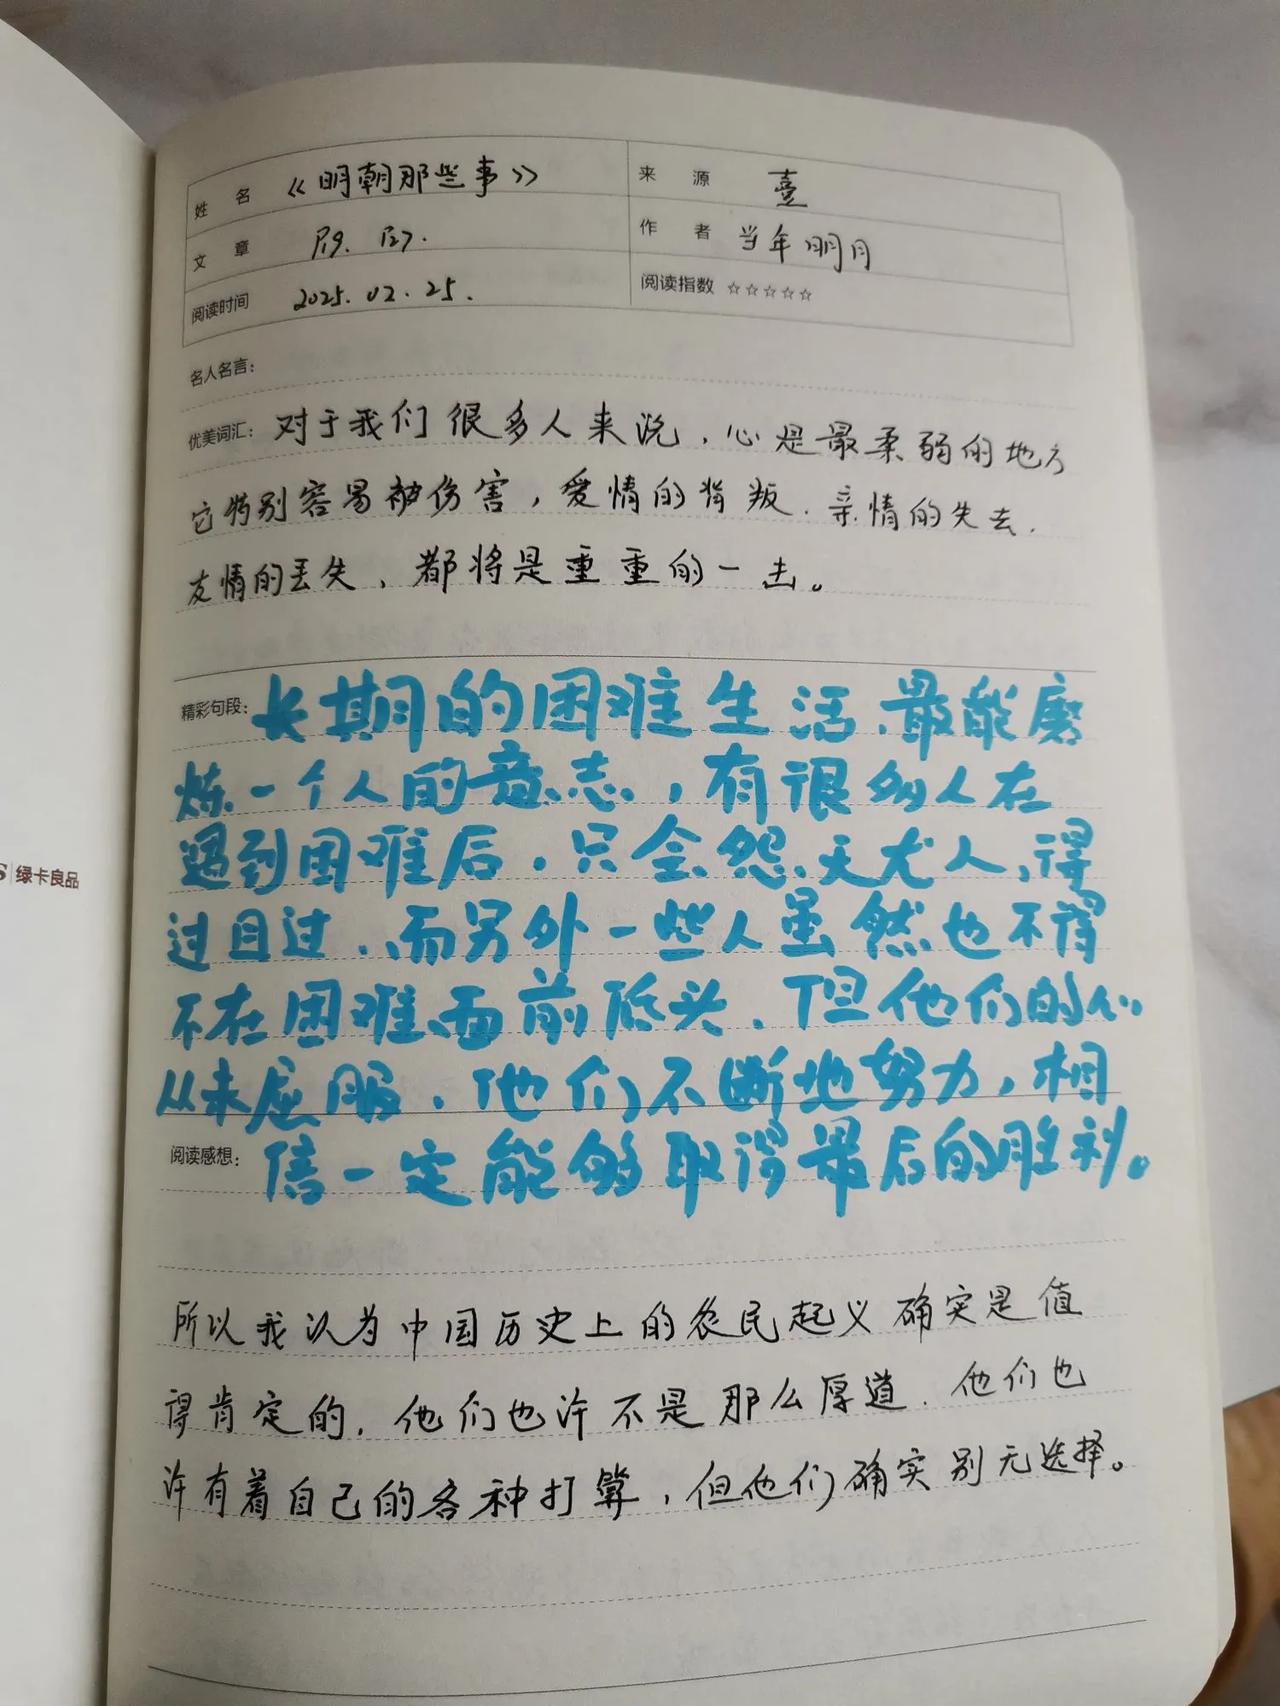 姓 名 《明朝那些事》 来 源 壹
文 章 P19. P27. 作 者 当年明月
阅读时间 2025.02.25. 阅读指数 ☆☆☆☆☆
名人名言:
优美词汇: 对于我们很多人来说，心是最柔弱的地方
它特别容易被伤害，爱情的背叛、亲情的失去、
友情的丢失，都将是重重的一击。
精彩句段: 长期的困难生活、最能磨
炼一个人的意志，有很多人在
遇到困难后，只会怨天尤人，得
过且过，而另外一些人虽然也不得
不在困难面前低头，但他们的心
从未屈服，他们不断地努力，相
阅读感想: 信一定能够取得最后的胜利。
所以我认为中国历史上的农民起义确实是值
得肯定的，他们也许不是那么厚道，他们也
许有着自己的各种打算，但他们确实别无选择。
S|绿卡良品